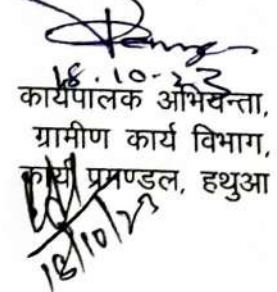 18.10-23
कार्यपालक अभियन्ता,
ग्रामीण कार्य विभाग,
कार्य प्रमण्डल, हथुआ
18/10/23